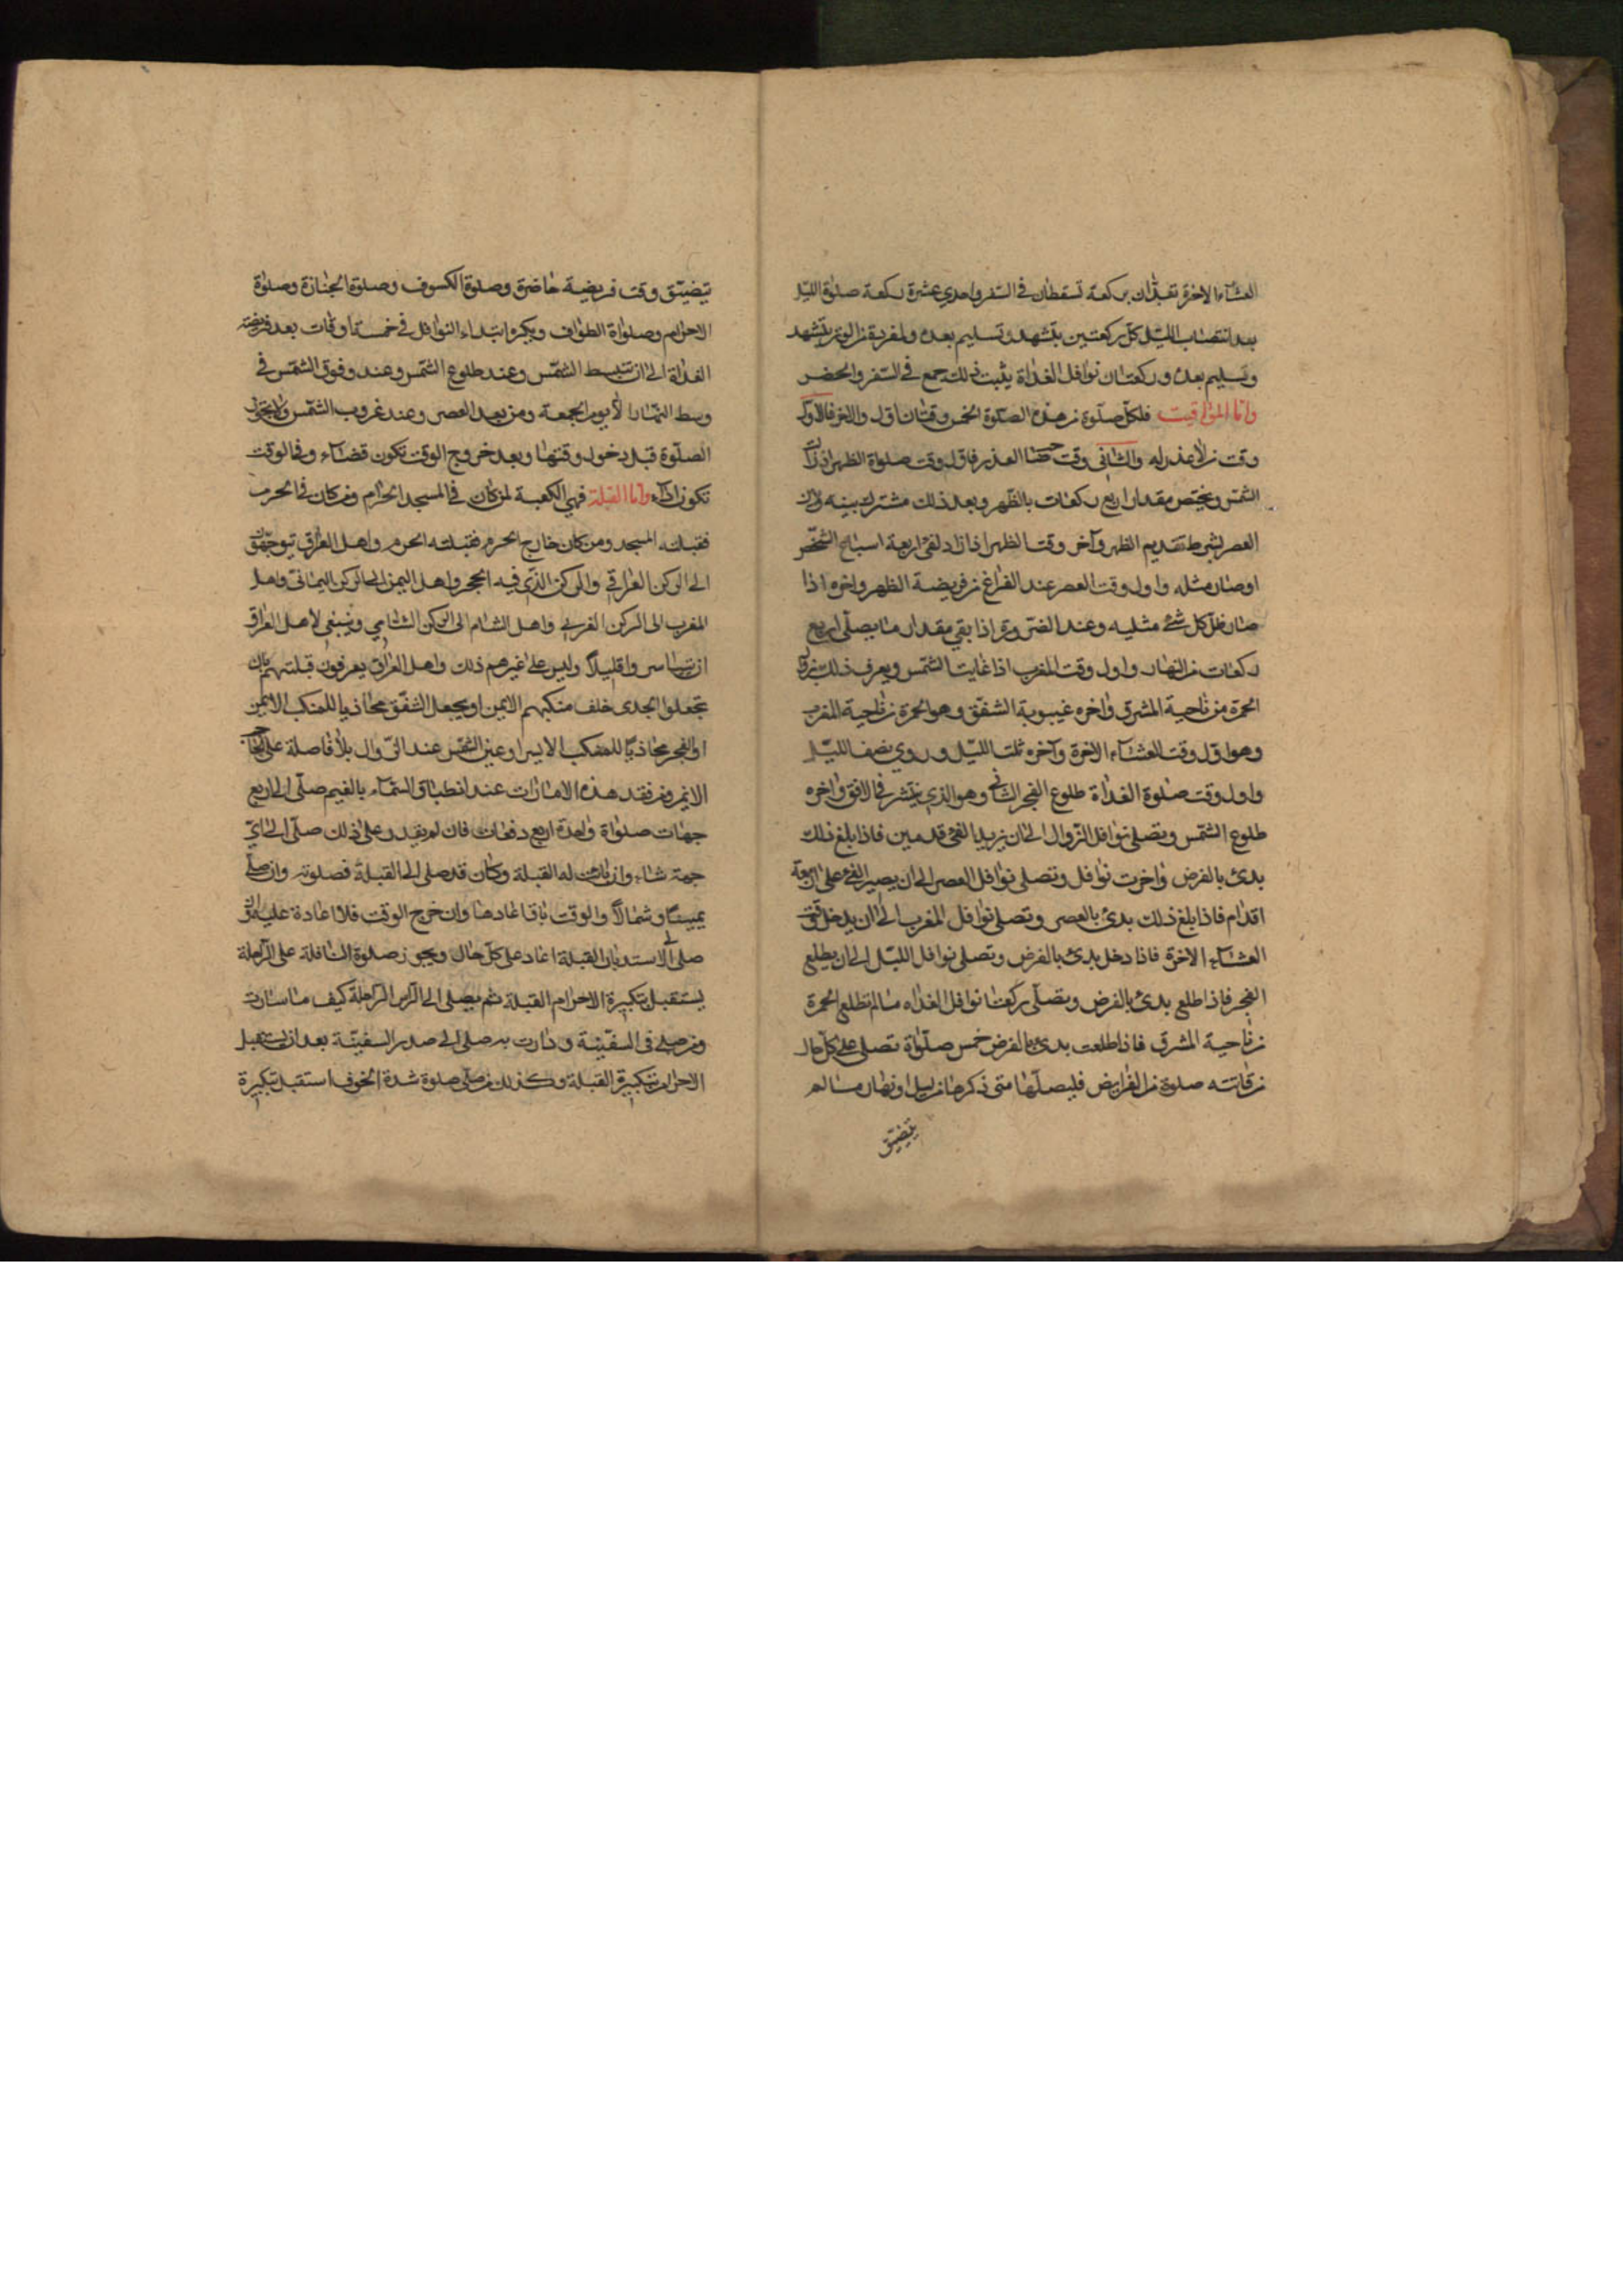 العشآء الاخرة تعدّان بركعة تسقطان في السّفر واحدي عشرة ركعة صلوة اللّيل
بعد انتصاف اللّيل كلّ ركعتين بتشهد وتسليم بعده والمفردة من الوتر بتشهد
وتسليم بعده وركعتان نوافل الغداة يثبت ذلك جمع في السّفر والحضر
وامّا المواقيت فلكلّ صلوة من هذه الصّلوة الخمس وقتان اوّل واخر فالاوّل
وقت من لا عذر له والثاني وقت العذر فاوّل وقت صلوة الظهر اذا زالت
الشمس ويختص مقدار اربع ركعات بالظّهر وبعد ذلك مشترك بينه وبين
العصر بشرط تقديم الظهر وآخر وقت الظهر اذا زاد الفئ اربعة اسباع الشخص
او صار مثله واول وقت العصر عند الفراغ من فريضة الظهر واخره اذا
صار ظلّ كل شئ مثليه وعند الضرورة اذا بقي مقدار ما يصلّى اربع
ركعات من النهار واول وقت المغرب اذا غابت الشمس ويعرف ذلك بزوال
الحمرة من ناحية المشرق واخره غيبوبة الشفق وهو الحمرة من ناحية المغرب
وهو اوّل وقت العشآء الاخرة وآخره ثلث اللّيل وروي نصف اللّيل
واول وقت صلوة الغداة طلوع الفجر الثاني وهو الذي ينتشر في الافق واخره
طلوع الشمس وتصلى نوافل الزّوال الى ان يزيد الفئ قدمين فاذا بلغ ذلك
بدئ بالفرض واخرت نوافل وتصلى نوافل العصر الى ان يصير الفئ على اربعة
اقدام فاذا بلغ ذلك بدئ بالعصر وتصلى نوافل المغرب الى ان يدخل وقت
العشآء الاخرة فاذا دخل بدئ بالفرض وتصلى نوافل اللّيل الى ان يطلع
الفجر فاذا طلع بدئ بالفرض وتصلّى ركعتا نوافل الغداه ما لم تطلع الحمرة
من ناحية المشرق فاذا طلعت بدئ بالفرض خمس صلواة تصلى على كل حال
من فاتته صلوة من الفرايض فليصلّها متى ذكرها من ليل او نهار ما لم
يتضيّق
يتضيّق وقت فريضة حاضرة وصلوة الكسوف وصلوة الجنازة وصلوة
الاحرام وصلواة الطواف ويكره ابتداء النوافل في خمسة اوقات بعد فريضة
الغداة الى ان تنبسط الشمس وعند طلوع الشمس وعند وقوف الشمس في
وسط النهار الا يوم الجمعة ومن بعد العصر وعند غروب الشمس ولا يجوز
الصلوة قبل دخول وقتها وبعد خروج الوقت تكون قضاء وفي الوقت
تكون اداء وامّا القبلة فهي الكعبة لمن كان في المسجد الحرام ومن كان في الحرم
فقبلته المسجد ومن كان خارج الحرم فقبلته الحرم واهل العراق يتوجّهون
الى الركن العراقي والركن الذي فيه الحجر واهل اليمن الى الركن اليماني واهل
المغرب الى الركن الغربي واهل الشام الى الركن الشامي وينبغي لاهل العراق
ان يتياسروا قليلا وليس على غيرهم ذلك واهل العراق يعرفون قبلتهم بان
تجعلوا الجدى خلف منكبهم الايمن او يجعل الشفق محاذيا للمنكب الايمن
او الفجر محاذيا للمنكب الايسر او عين الشمس عند الزّوال بلا فاصلة على الحاجب
الايمن ومن فقد هذه الامارات عند انطباق السّماء بالغيم صلّى الى اربع
جهات صلواة واحدة اربع دفعات فان لم يقدر على ذلك صلّى الى ايّ
جهة شاء وان بان له القبلة وكان قد صلى الى القبلة فصلوته وان صلّى
يمينا وشمالا والوقت باق اعادها وان خرج الوقت فلا اعادة عليه وان
صلى الى الاستدبار القبلة اعاد على كلّ حال ويجوز صلوة النافلة على الرّاحلة
يستقبل بتكبيرة الاحرام القبلة ثم يصلى الى الراس الرّاحلة كيف ما سارت
ومن صلى في السفينة ودارت به صلى الى صدر السفينة بعد ان يستقبل
الاحرام بتكبيرة القبلة وكذلك من صلّى صلوة شدة الخوف استقبل بتكبيرة